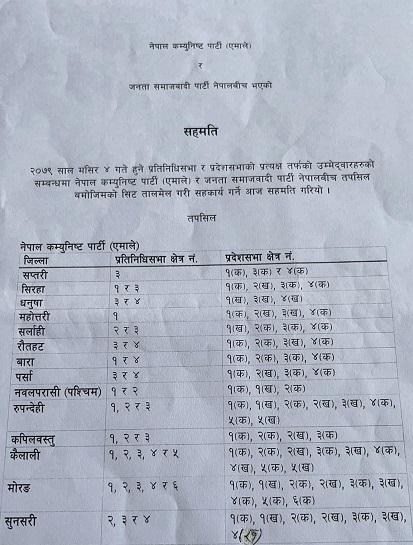 नेपाल कम्युनिष्ट पार्टी (एमाले)
र
जनता समाजवादी पार्टी नेपालबीच भएको
सहमति
२०७९ साल मंसिर ४ गते हुने प्रतिनिधिसभा र प्रदेशसभाको प्रत्यक्ष तर्फको उम्मेद्वारहरुको
सम्बन्धमा नेपाल कम्युनिष्ट पार्टी (एमाले) र जनता समाजवादी पार्टी नेपालबीच तपसिल
बमोजिमको सिट तालमेल गरी सहकार्य गर्ने आज सहमति गरियो ।
तपसिल
नेपाल कम्युनिष्ट पार्टी (एमाले)
जिल्ला प्रतिनिधिसभा क्षेत्र नं. प्रदेशसभा क्षेत्र नं.
सप्तरी ३ १(क), ३(क) र ४(क)
सिरहा १ र ३ १(क), २(ख), ३(क), ४(क)
धनुषा ३ र ४ १(ख), ३(क), ४(ख)
महोत्तरी १ १(क), २(ख), ३(ख), ४(क)
सर्लाही २ र ३ १(ख), २(क), ३(क), ४(क)
रौतहट ३ र ४ १(क), २(क), ३(ख), ४(क)
बारा १ र ४ १(क), २(क), ३(क), ४(क)
पर्सा ३ र ४ १(क), २(ख), ३(क), ४(क)
नवलपरासी (पश्चिम) १ र २ १(क), १(ख), २(क)
रुपन्देही १, २ र ३ १(क), १(ख), २(क), २(ख), ३(ख), ४(क),
५(क), ५(ख)
कपिलवस्तु १, २ र ३ १(क), २(क), २(ख), ३(क)
कैलाली १, २, ३, ४ र ५ १(क), २(क), २(ख), ३(क), ३(ख), ४(क),
४(ख), ५(क), ५(ख)
मोरङ १, २, ३, ४ र ६ १(क), १(ख), २(क), २(ख), ३(क), ३(ख),
४(क), ५(क), ६(क)
सुनसरी २, ३ र ४ १(क), १(ख), २(क), २(ख), ३(क), ३(ख),